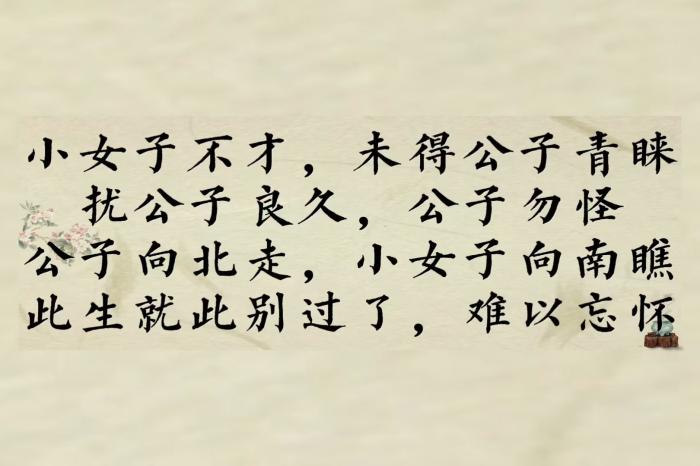 小女子不才，未得公子青睐
扰公子良久，公子勿怪
公子向北走，小女子向南瞧
此生就此别过了，难以忘怀